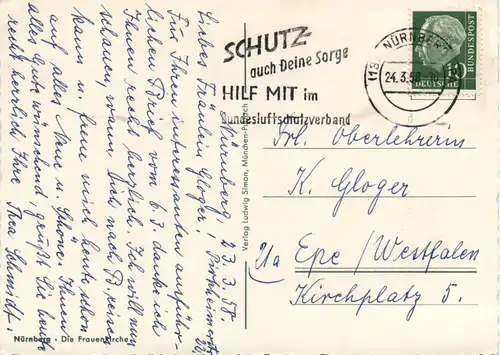 Nürnberg, 23.3.58.
Pirkheimerstr.
Liebes Fräulein Gloger!
Für Ihren interessanten ausführ-
lichen Brief vom 6.3. danke ich
Ihnen recht herzlich. Ich will nun
schauen, wann ich nach B. reisen
kann u. freue mich heute schon
auf alles Neue u. Schöne. Ihnen
alles Gute wünschend, grüßt Sie heute
recht herzlich Ihre Thea Schmidt.
Nürnberg - Die Frauenkirche
Verlag Ludwig Simon, München-Pullach
SCHUTZ
auch Deine Sorge
HILF MIT im
Bundesluftschutzverband
(13a) NÜRNBERG
24.3.58
DEUTSCHE BUNDESPOST
10
Frl. Oberlehrerin
K. Gloger
21a Epe / Westfalen
Kirchplatz 5.